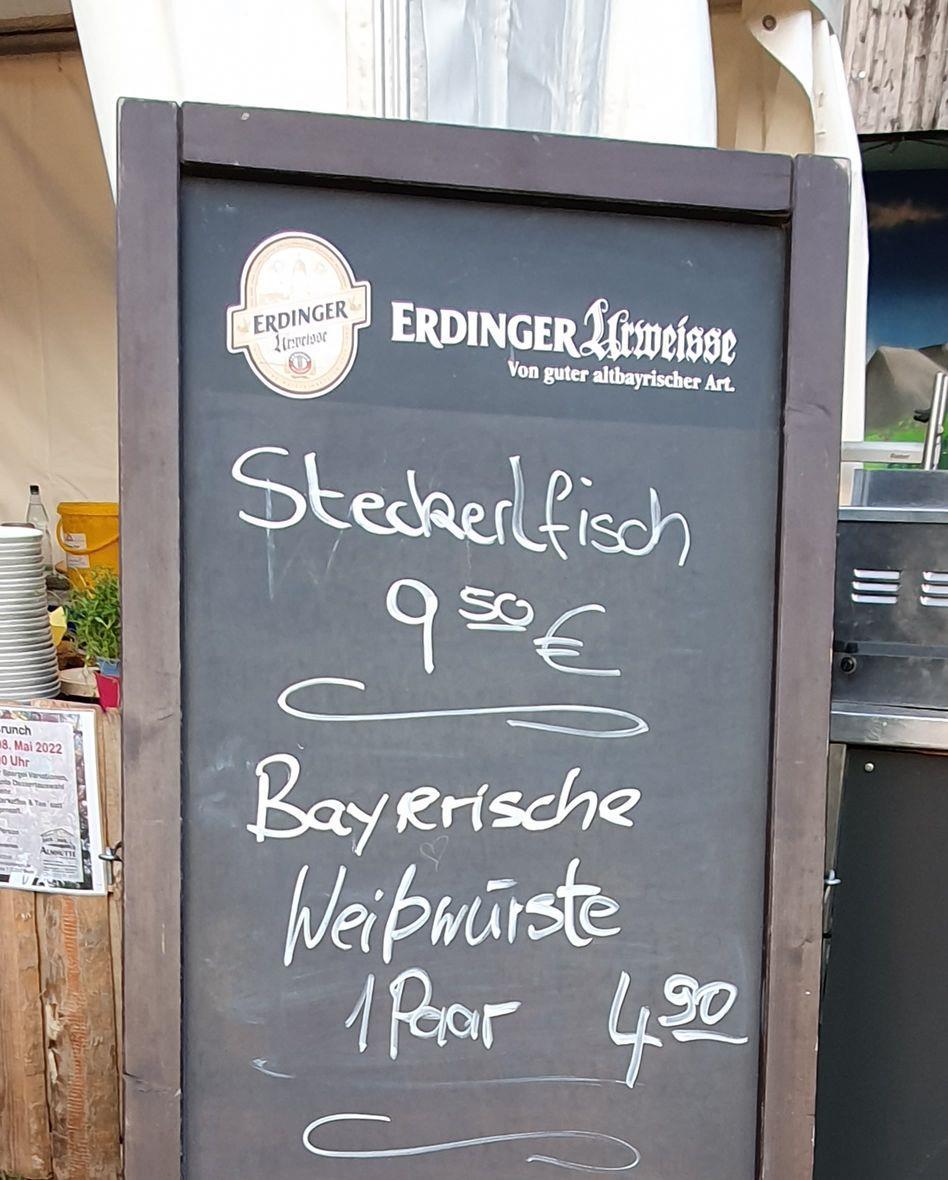 ERDINGER
Urweisse
ERDINGER Urweisse
Von guter altbayrischer Art.
Steckerlfisch
9 50 €
Bayerische
Weißwürste
1 Paar 4 90
runch
08. Mai 2022
0 Uhr
ALMHÜTTE